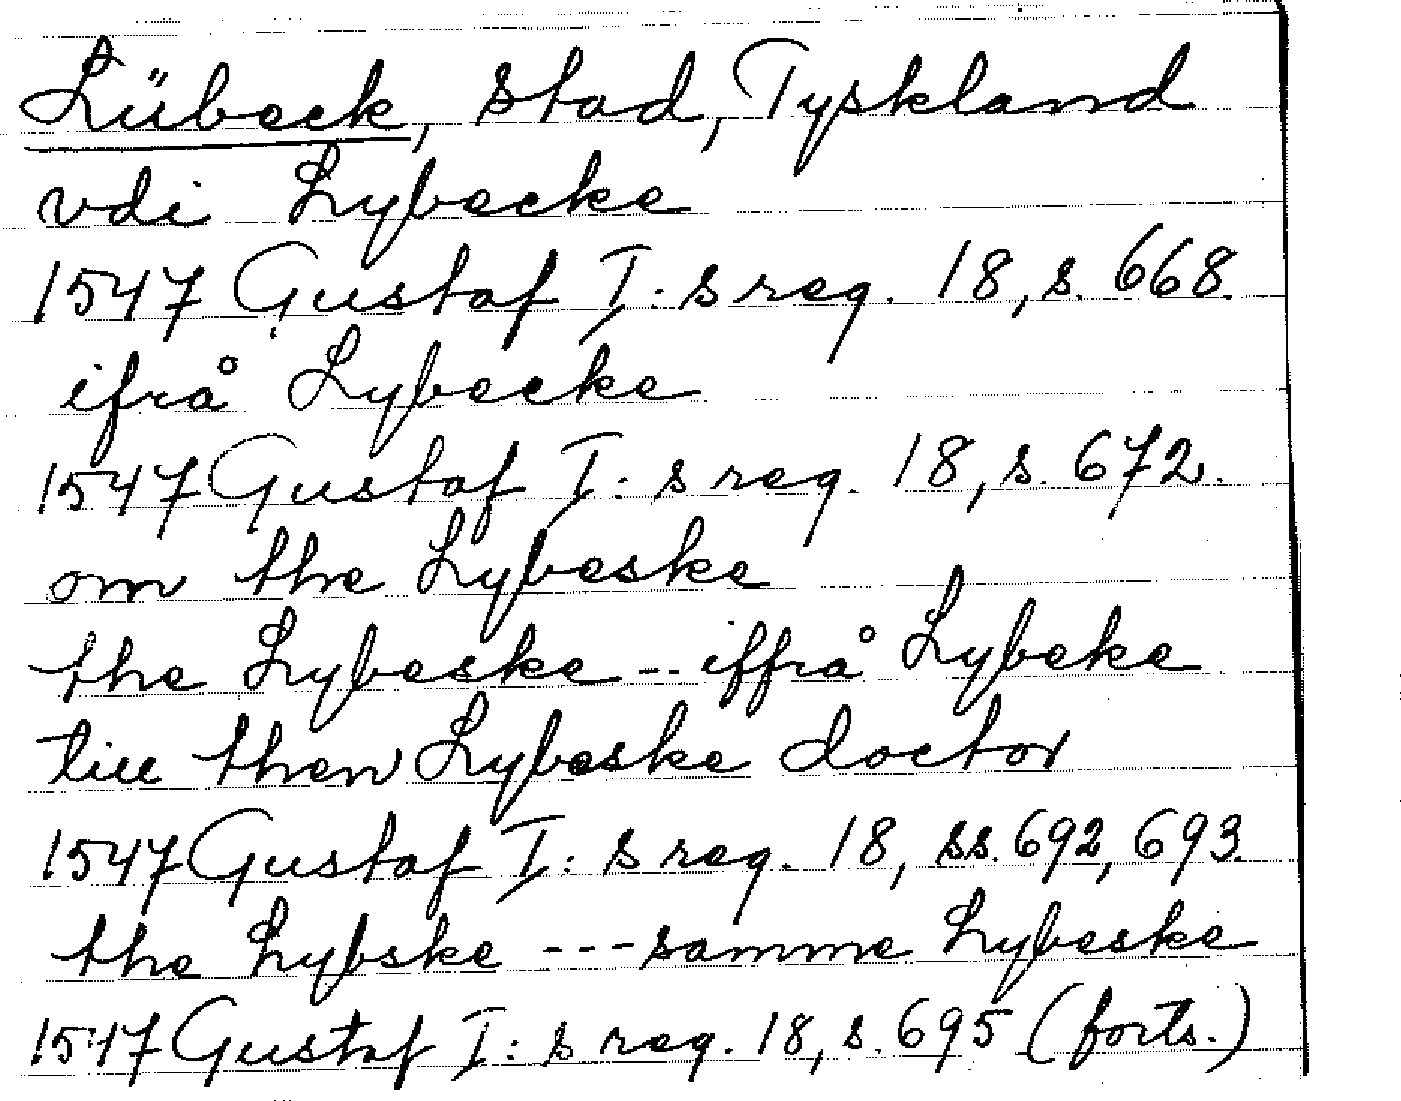 Lübeck, stad, Tyskland
vdi Lybecke
1547 Gustaf I: s reg. 18, s. 668.
ifrå Lybecke
1547 Gustaf I: s reg. 18, s. 672.
om the Lybeske
the Lybeske -- iffrå Lybeke
till then Lybeske doctor
1547 Gustaf I: s reg. 18, ss. 692, 693.
the Lybske --- samme Lybeske
1547 Gustaf I: s reg. 18, s. 695 (forts.)